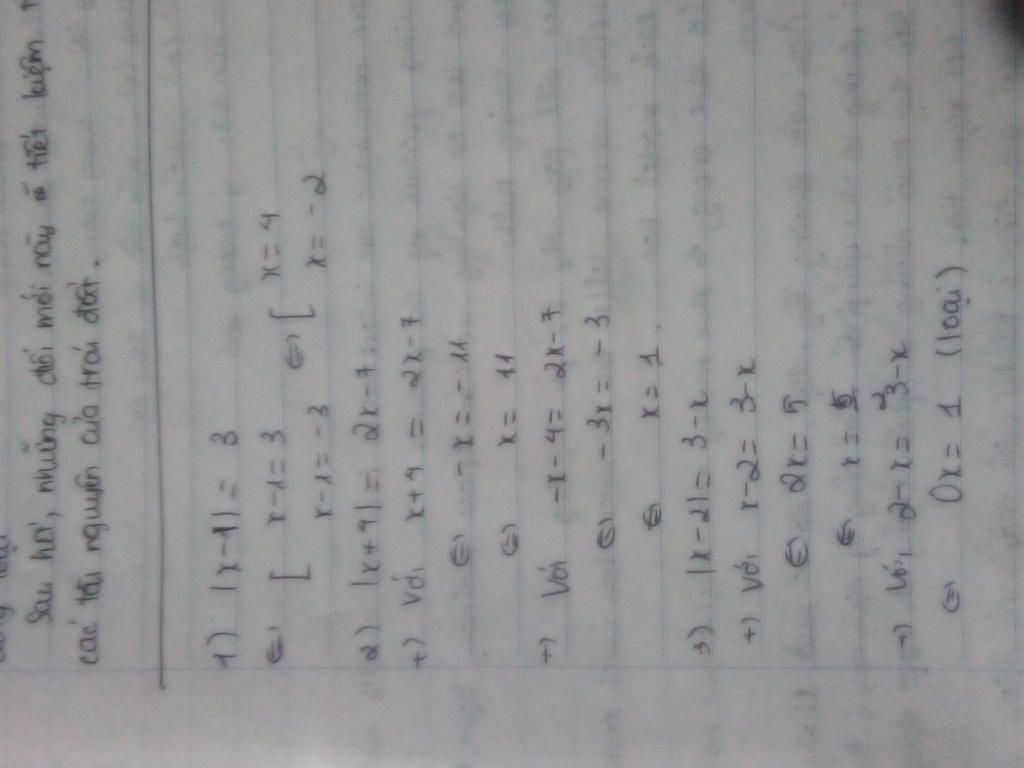 Sau hơi, những đổi mới này sẽ tiết kiệm
các tài nguyên của trái đất.
1) |x-1| = 3
⇔ [ x-1=3 ⇔ [ x=4
x-1=-3 x=-2
2) |x+4| = 2x-7
+) Với x+4 = 2x-7
⇔ -x = -11
⇔ x = 11
+) Với -x-4 = 2x-7
⇔ -3x = -3
⇔ x = 1
3) |x-2| = 3-x
+) Với x-2 = 3-x
⇔ 2x = 5
⇔ x = 5/2
+) Với 2-x = 3-x
⇔ 0x = 1 (loại)